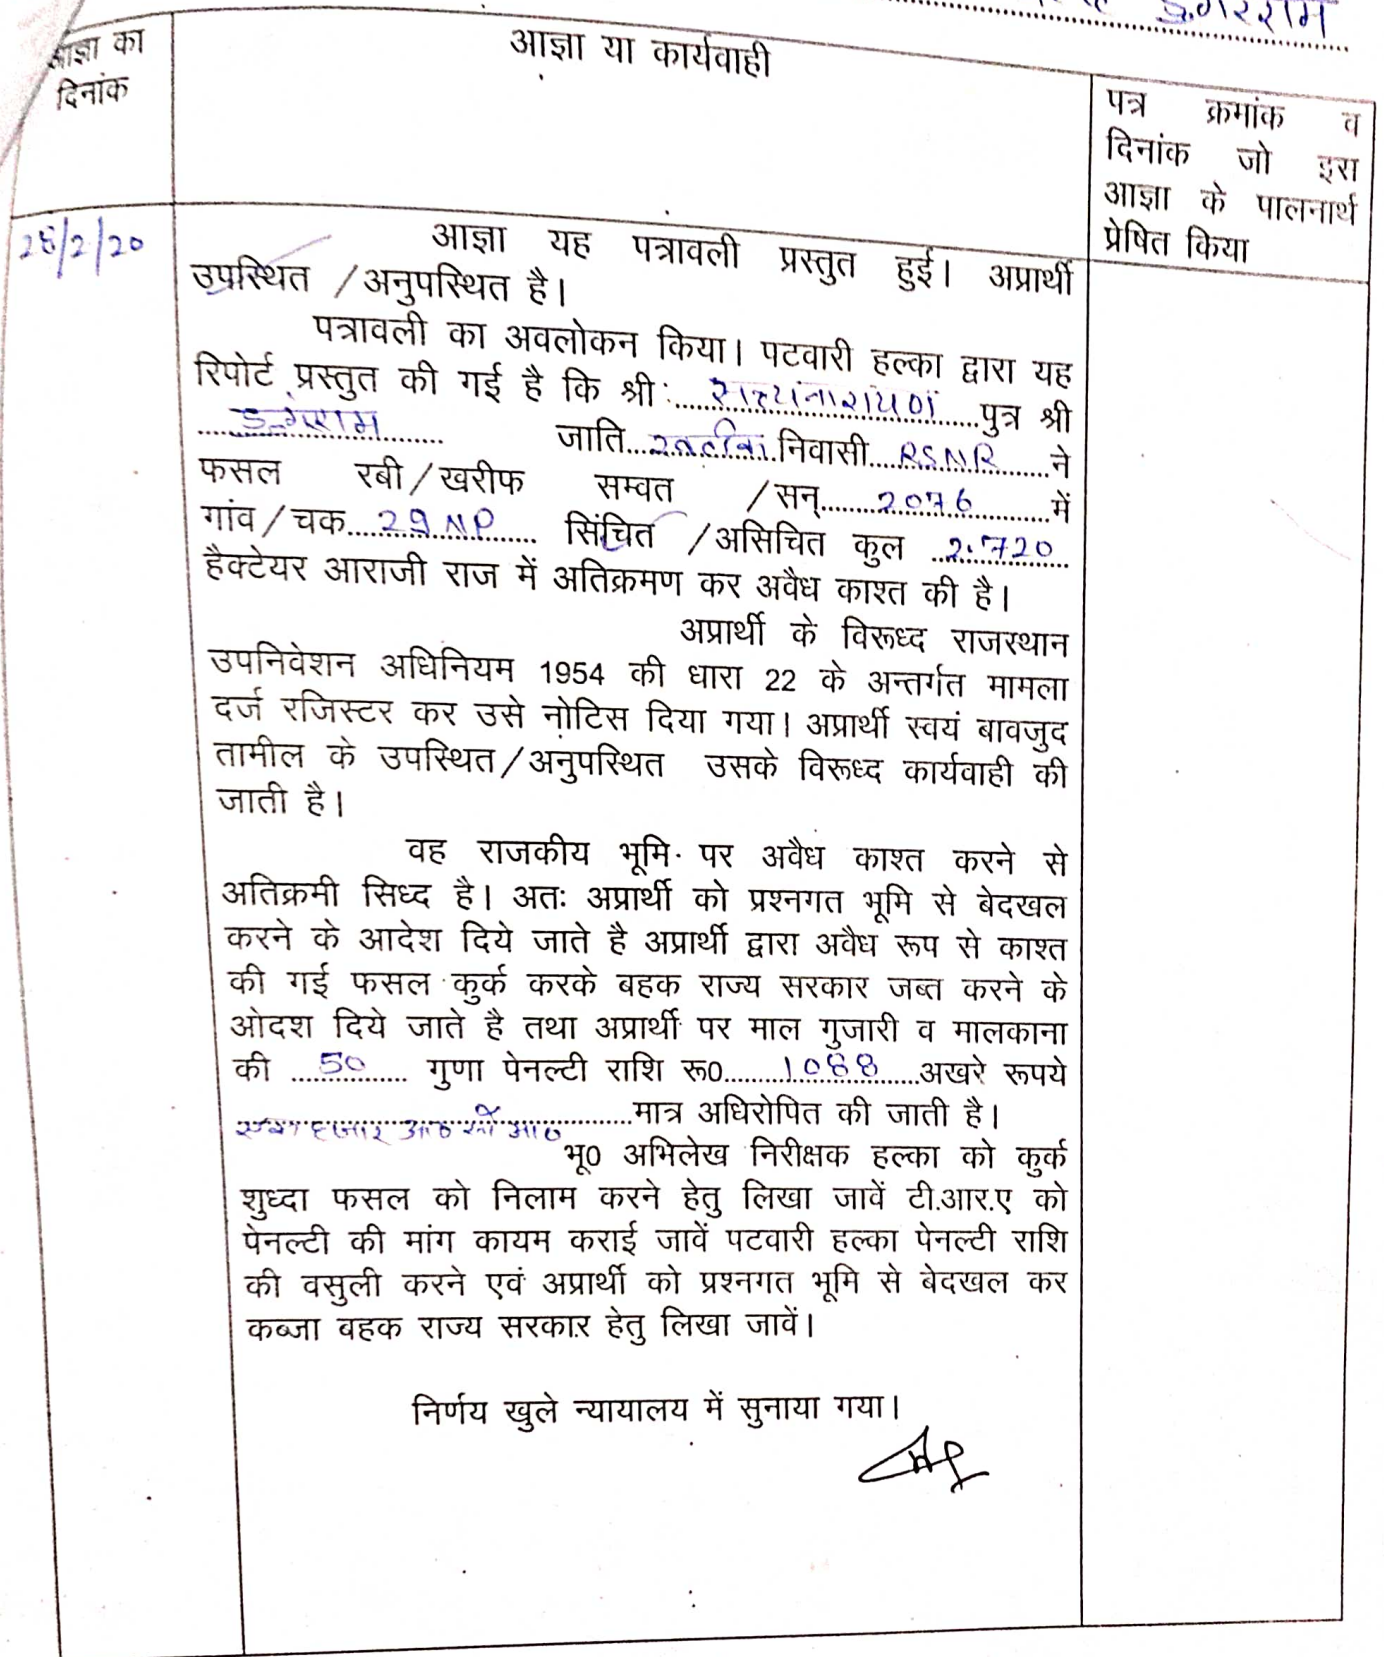 डुगरराम
आज्ञा का
दिनांक
आज्ञा या कार्यवाही
पत्र क्रमांक व
दिनांक जो इस
आज्ञा के पालनार्थ
प्रेषित किया
/2/20
आज्ञा यह पत्रावली प्रस्तुत हुई। अप्रार्थी
उपस्थित / अनुपस्थित है।
पत्रावली का अवलोकन किया। पटवारी हल्का द्वारा यह
रिपोर्ट प्रस्तुत की गई है कि श्रीः सत्यनारायण पुत्र श्री
जाति खटीक निवासी RSNR ने
फसल रबी/खरीफ सम्वत /सन् 2076 में
गांव/चक 29 NP सिंचित /असिचित कुल 2.720
हैक्टेयर आराजी राज में अतिक्रमण कर अवैध काश्त की है।
अप्रार्थी के विरूध्द राजस्थान
उपनिवेशन अधिनियम 1954 की धारा 22 के अन्तर्गत मामला
दर्ज रजिस्टर कर उसे नोटिस दिया गया। अप्रार्थी स्वयं बावजुद
तामील के उपस्थित/अनुपस्थित उसके विरूध्द कार्यवाही की
जाती है।
वह राजकीय भूमि पर अवैध काश्त करने से
अतिक्रमी सिध्द है। अतः अप्रार्थी को प्रश्नगत भूमि से बेदखल
करने के आदेश दिये जाते है अप्रार्थी द्वारा अवैध रूप से काश्त
की गई फसल कुर्क करके बहक राज्य सरकार जब्त करने के
ओदश दिये जाते है तथा अप्रार्थी पर माल गुजारी व मालकाना
की 50 गुणा पेनल्टी राशि रू0 1088 अखरे रूपये
मात्र अधिरोपित की जाती है।
भू0 अभिलेख निरीक्षक हल्का को कुर्क
शुध्दा फसल को निलाम करने हेतु लिखा जावें टी.आर.ए को
पेनल्टी की मांग कायम कराई जावें पटवारी हल्का पेनल्टी राशि
की वसुली करने एवं अप्रार्थी को प्रश्नगत भूमि से बेदखल कर
कब्जा बहक राज्य सरकार हेतु लिखा जावें।
निर्णय खुले न्यायालय में सुनाया गया।